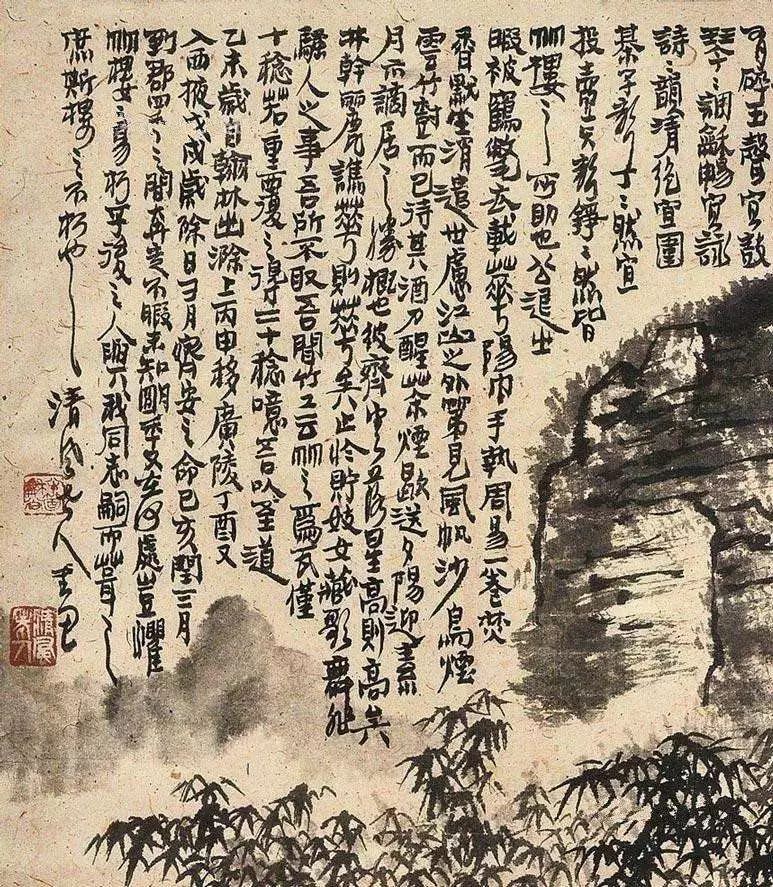 有碎玉聲宜鼓
琴々調龢暢宜詠
詩々韻清絕宜圍
棊子聲丁々然宜
投壺矢聲錚々然皆
竹樓之所助也公退之
暇被鶴氅衣戴華陽巾手執周易一卷焚
香默坐消遣世慮江山之外第見風帆沙鳥煙
雲竹樹而已待其酒力醒茶煙歇送夕陽迎素
月亦謫居之勝概也彼齊雲落星高則高矣
井幹麗譙華則華矣止於貯妓女藏歌舞非
騷人之事吾所不取吾聞竹工云竹之爲瓦僅
十稔若重覆之得二十稔噫吾以至道
乙未歲自翰林出滁上丙申移廣陵丁酉又
入西掖戊戌歲除日有齊安之命己亥閏三月
到郡四年之間奔走不暇未知明年又在何處豈懼
竹樓之易朽乎後之人與我同志嗣而葺之
庶斯樓之不朽也 清湘老人